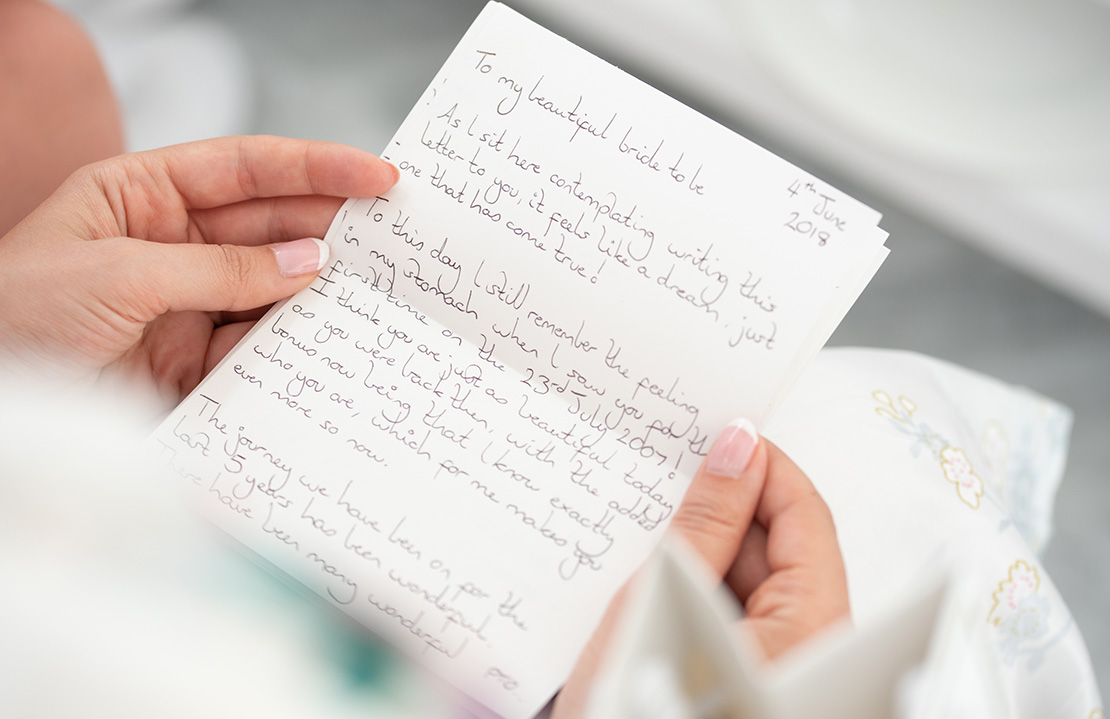 To my beautiful bride to be
4th June
2018
As I sit here contemplating writing this
letter to you, it feels like a dream, just
- one that has come true!
To this day I still remember the feeling
in my stomach when I saw you for the
first time on the 23rd July 2007!
I think you are just as beautiful today
as you were back then, with the added
bonus now being that I know exactly
who you are, which for me makes you
even more so now.
The journey we have been on for the
last 5 years has been wonderful.
There have been many wonderful